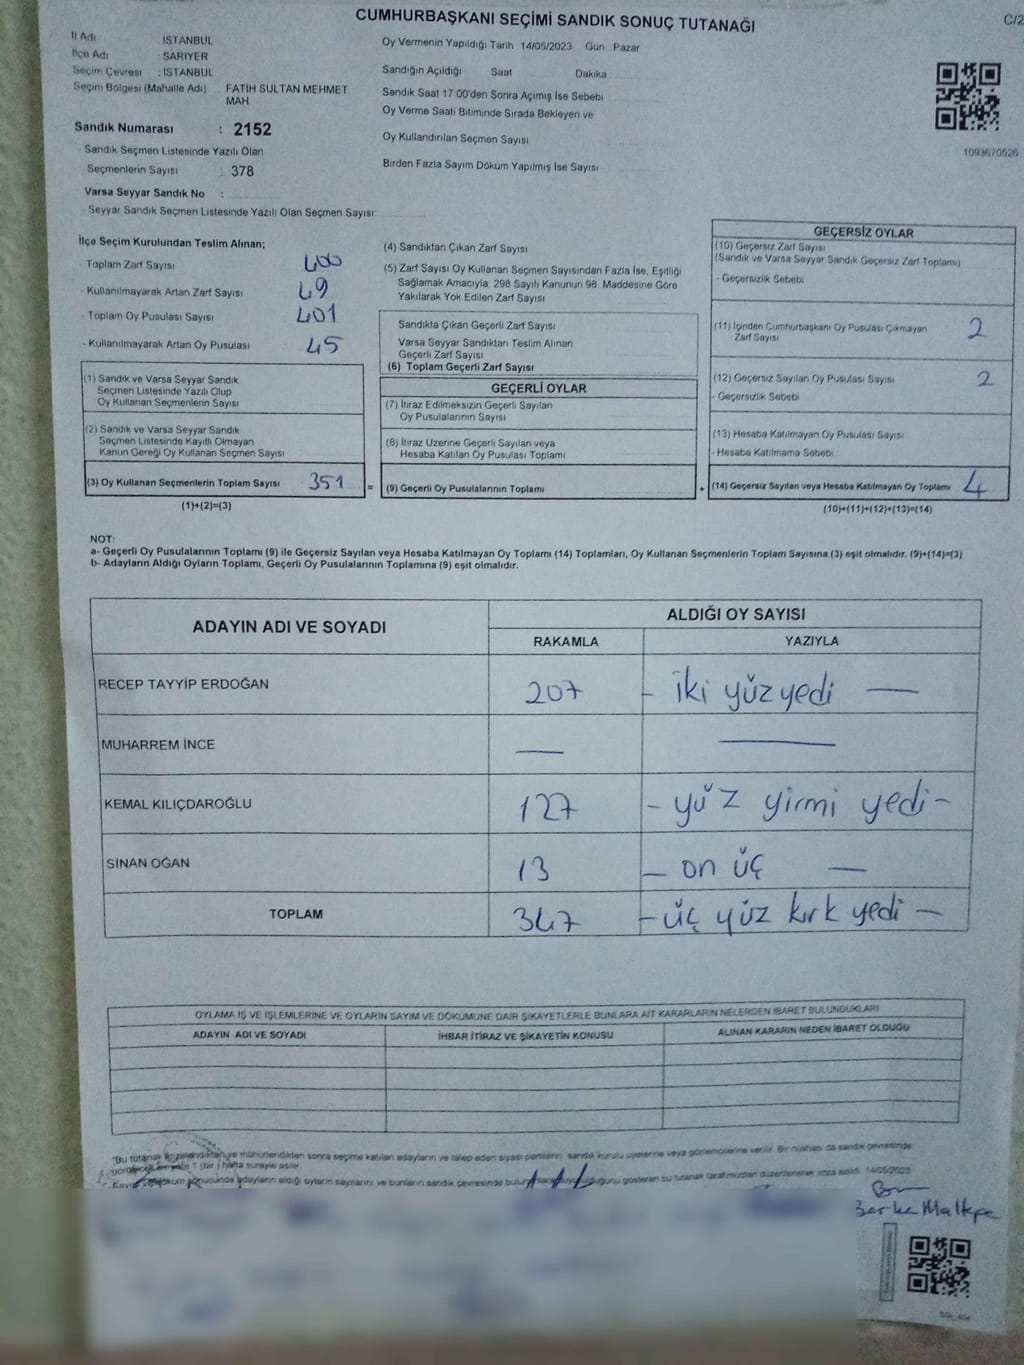 CUMHURBAŞKANI SEÇİMİ SANDIK SONUÇ TUTANAĞI
C/2
İl Adı İSTANBUL
İlçe Adı : SARIYER
Seçim Çevresi : İSTANBUL
Seçim Bölgesi (Mahalle Adı) FATİH SULTAN MEHMET MAH
Sandık Numarası : 2152
Sandık Seçmen Listesinde Yazılı Olan
Seçmenlerin Sayısı : 378
Varsa Seyyar Sandık No :
Seyyar Sandık Seçmen Listesinde Yazılı Olan Seçmen Sayısı:
Oy Vermenin Yapıldığı Tarih 14/05/2023 Gün Pazar
Sandığın Açıldığı Saat Dakika
Sandık Saat 17:00'den Sonra Açılmış İse Sebebi
Oy Verme Saati Bitiminde Sırada Bekleyen ve
Oy Kullandırılan Seçmen Sayısı
Birden Fazla Sayım Döküm Yapılmış İse Sayısı
1093670526
İlçe Seçim Kurulundan Teslim Alınan;
- Toplam Zarf Sayısı 400
- Kullanılmayarak Artan Zarf Sayısı 49
- Toplam Oy Pusulası Sayısı 401
- Kullanılmayarak Artan Oy Pusulası 45
(1) Sandık ve Varsa Seyyar Sandık
Seçmen Listesinde Yazılı Olup
Oy Kullanan Seçmenlerin Sayısı
(2) Sandık ve Varsa Seyyar Sandık
Seçmen Listesinde Kayıtlı Olmayan
Kanun Gereği Oy Kullanan Seçmen Sayısı
(3) Oy Kullanan Seçmenlerin Toplam Sayısı 351 =
(1)+(2)=(3)
(4) Sandıktan Çıkan Zarf Sayısı
(5) Zarf Sayısı Oy Kullanan Seçmen Sayısından Fazla İse, Eşitliği
Sağlamak Amacıyla, 298 Sayılı Kanunun 98. Maddesine Göre
Yakılarak Yok Edilen Zarf Sayısı
Sandıkta Çıkan Geçerli Zarf Sayısı
Varsa Seyyar Sandıktan Teslim Alınan
Geçerli Zarf Sayısı
(6) Toplam Geçerli Zarf Sayısı
GEÇERLİ OYLAR
(7) İtiraz Edilmeksizin Geçerli Sayılan
Oy Pusulalarının Sayısı
(8) İtiraz Üzerine Geçerli Sayılan veya
Hesaba Katılan Oy Pusulası Toplamı
(9) Geçerli Oy Pusulalarının Toplamı +
GEÇERSİZ OYLAR
(10) Geçersiz Zarf Sayısı
(Sandık ve Varsa Seyyar Sandık Geçersiz Zarf Toplamı)
- Geçersizlik Sebebi
(11) İçinden Cumhurbaşkanı Oy Pusulası Çıkmayan 2
Zarf Sayısı
(12) Geçersiz Sayılan Oy Pusulası Sayısı 2
- Geçersizlik Sebebi
(13) Hesaba Katılmayan Oy Pusulası Sayısı
- Hesaba Katılmama Sebebi
(14) Geçersiz Sayılan veya Hesaba Katılmayan Oy Toplamı 4
(10)+(11)+(12)+(13)=(14)
NOT:
a- Geçerli Oy Pusulalarının Toplamı (9) ile Geçersiz Sayılan veya Hesaba Katılmayan Oy Toplamı (14) Toplamları, Oy Kullanan Seçmenlerin Toplam Sayısına (3) eşit olmalıdır. (9)+(14)=(3)
b- Adayların Aldığı Oyların Toplamı, Geçerli Oy Pusulalarının Toplamına (9) eşit olmalıdır.
ADAYIN ADI VE SOYADI ALDIĞI OY SAYISI
RAKAMLA YAZIYLA
RECEP TAYYİP ERDOĞAN 207 - iki yüz yedi —
MUHARREM İNCE — —
KEMAL KILIÇDAROĞLU 127 - yüz yirmi yedi -
SİNAN OĞAN 13 - on üç —
TOPLAM 347 - üç yüz kırk yedi -
OYLAMA İŞ VE İŞLEMLERİNE VE OYLARIN SAYIM VE DÖKÜMÜNE DAİR ŞİKAYETLERLE BUNLARA AİT KARARLARIN NELERDEN İBARET BULUNDUKLARI
ADAYIN ADI VE SOYADI İHBAR İTİRAZ VE ŞİKAYETİN KONUSU ALINAN KARARIN NEDEN İBARET OLDUĞU
"Bu tutanak imzalandıktan ve mühürlendikten sonra seçime katılan adayların ve talep eden siyasi partilerin sandık kurulu üyelerine veya gözlemcilerine verilir. Bir nüshası da sandık çevresinde
görülecek bir yere 1 (bir) hafta süreyle asılır.
döküm sonucunda adayların aldığı oyların sayılarını ve bunların sandık çevresinde olduğunu gösteren bu tutanak tarafımızdan düzenlenerek imza edildi. 14/05/2023
Berke Maltepe